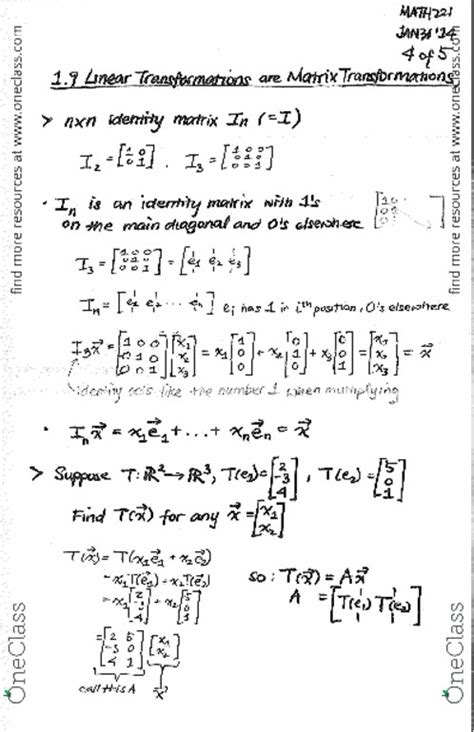 MATH 221
JAN 31 '14
4 of 5
1.9 Linear Transformations are Matrix Transformations
> n×n identity matrix In (=I)
I2 = [1 0; 0 1] . I3 = [1 0 0; 0 1 0; 0 0 1]
· In is an identity matrix with 1's
on the main diagonal and 0's elsewhere
I3 = [1 0 0; 0 1 0; 0 0 1] = [e1 e2 e3]
In = [e1 e2 ... en] ei has 1 in ith position, 0's elsewhere
I3x⃗ = [1 0 0; 0 1 0; 0 0 1] [x1; x2; x3] = x1[1; 0; 0] + x2[0; 1; 0] + x3[0; 0; 1] = [x1; x2; x3] = x⃗
identity acts like the number 1 when multiplying
· In x⃗ = x1e⃗1 + ... + xne⃗n = x⃗
> Suppose T: ℝ² → ℝ³, T(e1) = [2; -3; 4], T(e2) = [5; 0; 1]
Find T(x⃗) for any x⃗ = [x1; x2]
T(x⃗) = T(x1e⃗1 + x2e⃗2)
= x1T(e⃗1) + x2T(e⃗2)
= x1[2; -3; 4] + x2[5; 0; 1]
= [2 5; -3 0; 4 1] [x1; x2]
call this A = x⃗
so: T(x⃗) = Ax⃗
A = [T(e⃗1) T(e⃗2)]
find more resources at www.oneclass.com
find more resources at www.oneclass.com
OneClass
OneClass